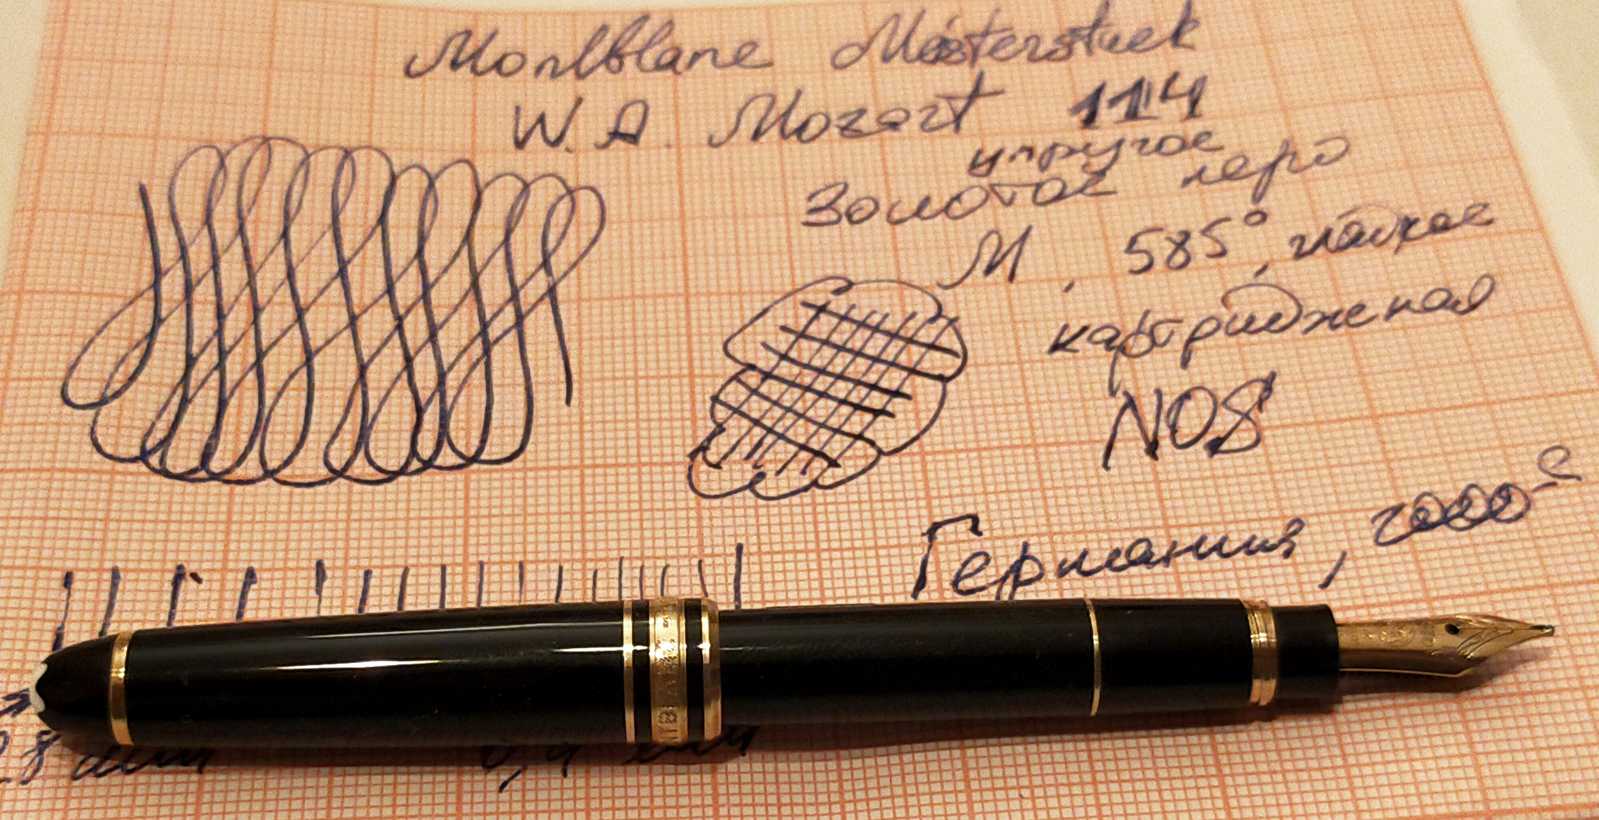 Montblanc Meisterstuck
W. A. Mozart 114
упругое
Золотое перо
М, 585°, гладкое
картриджная
NOS
Германия, 2000-е
0,4 mm